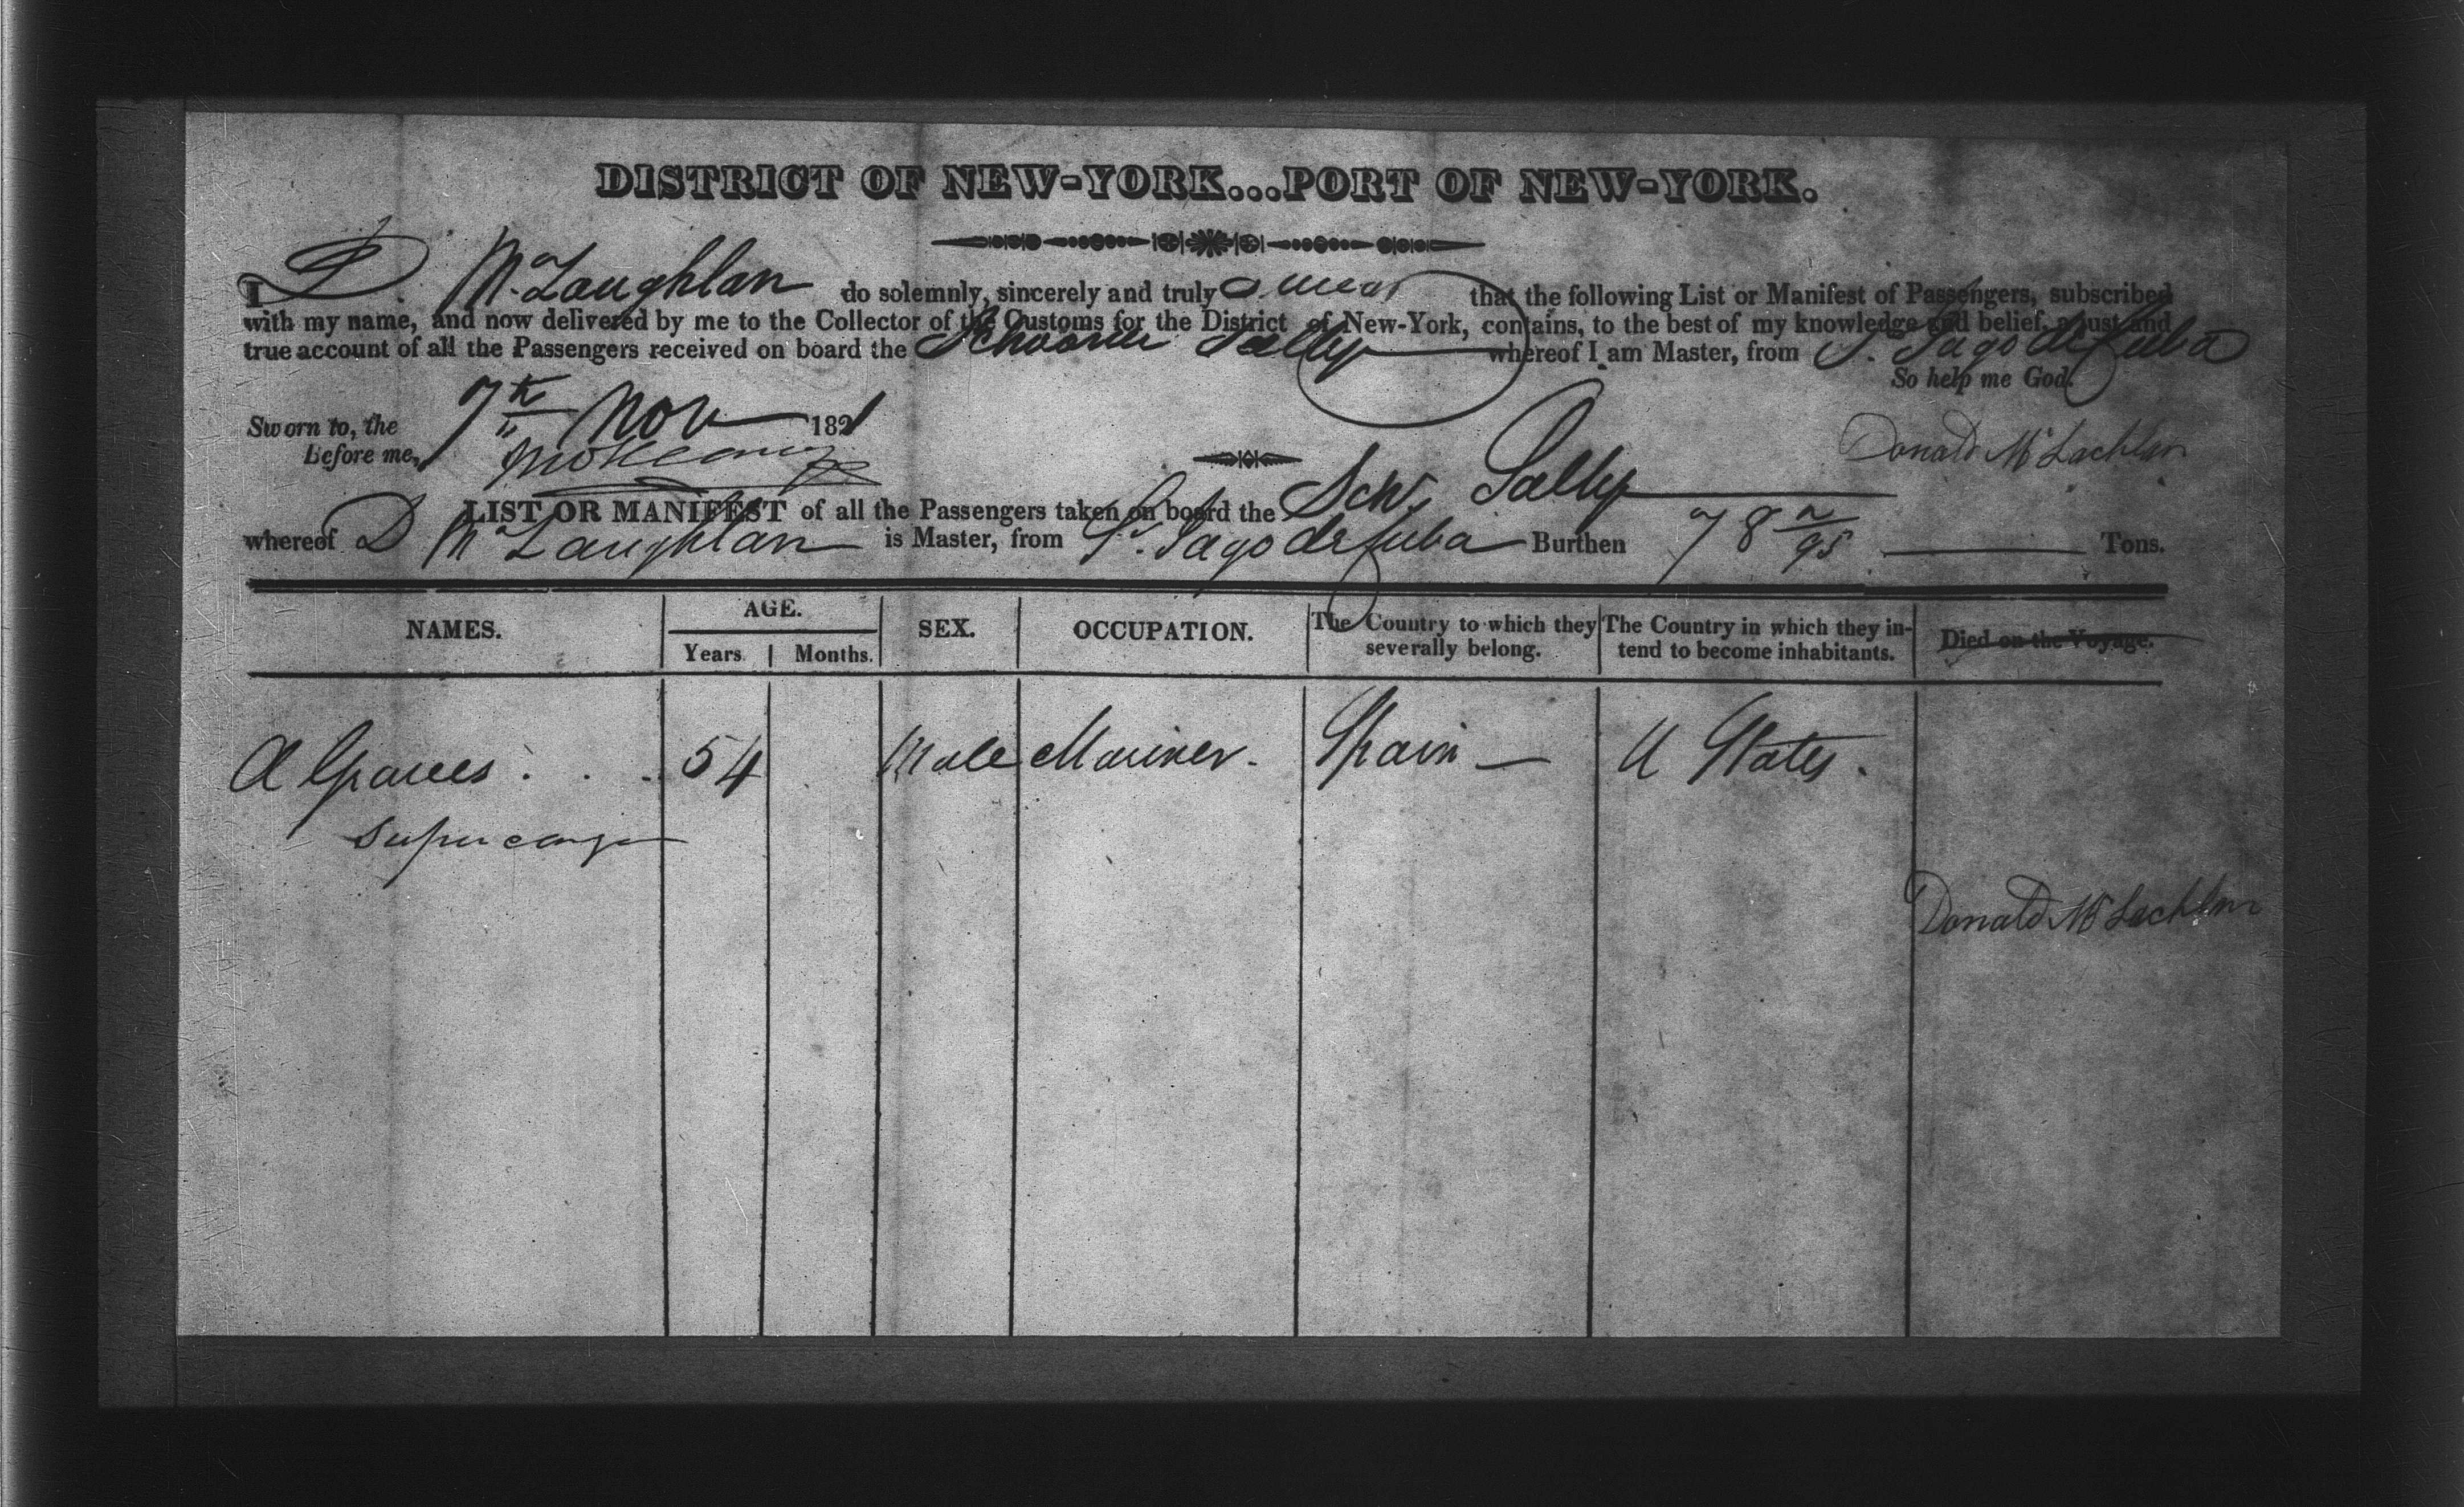 DISTRICT OF NEW-YORK...PORT OF NEW-YORK.
I D. McLaughlan do solemnly, sincerely and truly swear that the following List or Manifest of Passengers, subscribed
with my name, and now delivered by me to the Collector of the Customs for the District of New-York, contains, to the best of my knowledge and belief, a just and
true account of all the Passengers received on board the Schooner Sally whereof I am Master, from St. Jago de Cuba
So help me God.
Sworn to, the 7th Nov 1821
Before me,
Donald McLachlan
LIST OR MANIFEST of all the Passengers taken on board the Schr. Sally
whereof D McLaughlan is Master, from St. Jago de Cuba Burthen 78 2/95 Tons.
NAMES. AGE. Years. Months. SEX. OCCUPATION. The Country to which they severally belong. The Country in which they intend to become inhabitants. Died on the Voyage.
A 54 Male Mariner. Spain — U States.
Supercargo
Donald McLachlan